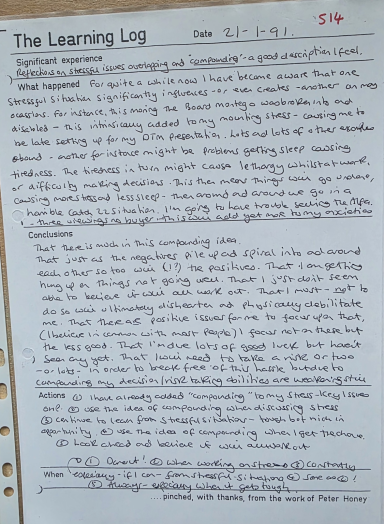 514
The Learning Log Date 21-1-91.
Significant experience
Reflections on stressful issues overlapping and "compounding" - a good description I feel.
What happened For quite a while now I have become aware that one
stressful situation significantly influences - or even creates - another on many
occasions. For instance, this morning the Board was broken into and
disabled - this intrinsically added to my mounting stress - causing me to
be late setting up for my presentation. Lots and lots of other examples
abound - another for instance might be problems getting sleep causing
tiredness. The tiredness in turn might cause lethargy whilst at work,
or difficulty making decisions. This then means things will go undone,
causing more stress and less sleep - then around and around we go in a
horrible catch 22 situation. I'm going to have trouble selling the
- three viewings no buyer - this will add yet more to my anxieties
Conclusions
That there is much in this compounding idea.
That just as the negatives pile up and spiral into and around
each other so too will (!?) the positives. That I am getting
hung up on things not going well. That I just don't seem
able to believe it will all work out. That I must - not to
do so will ultimately dishearten and physically debilitate
me. That there are positive issues for me to focus upon that,
(I believe in common with most people) I focus not on these but
the less good. That I'm due lots of good luck but haven't
seen any yet. That I will need to take a risk or two
- or lots - in order to break free of this hassle, but due to
compounding my decision/risk taking abilities are weakening still
Actions ① I have already added "compounding" to my stress - key issues
② use the idea of compounding when discussing stress
③ continue to learn from stressful situations - tough but rich in
opportunity ④ use the idea of compounding when I get the chance.
⑤ Look ahead and believe it will all work out
① Done it! ② When working on stress ③ constantly
When especially - if I can - from stressful situations ④ Same as ②!
⑤ Always - especially when it gets tough.
....pinched, with thanks, from the work of Peter Honey